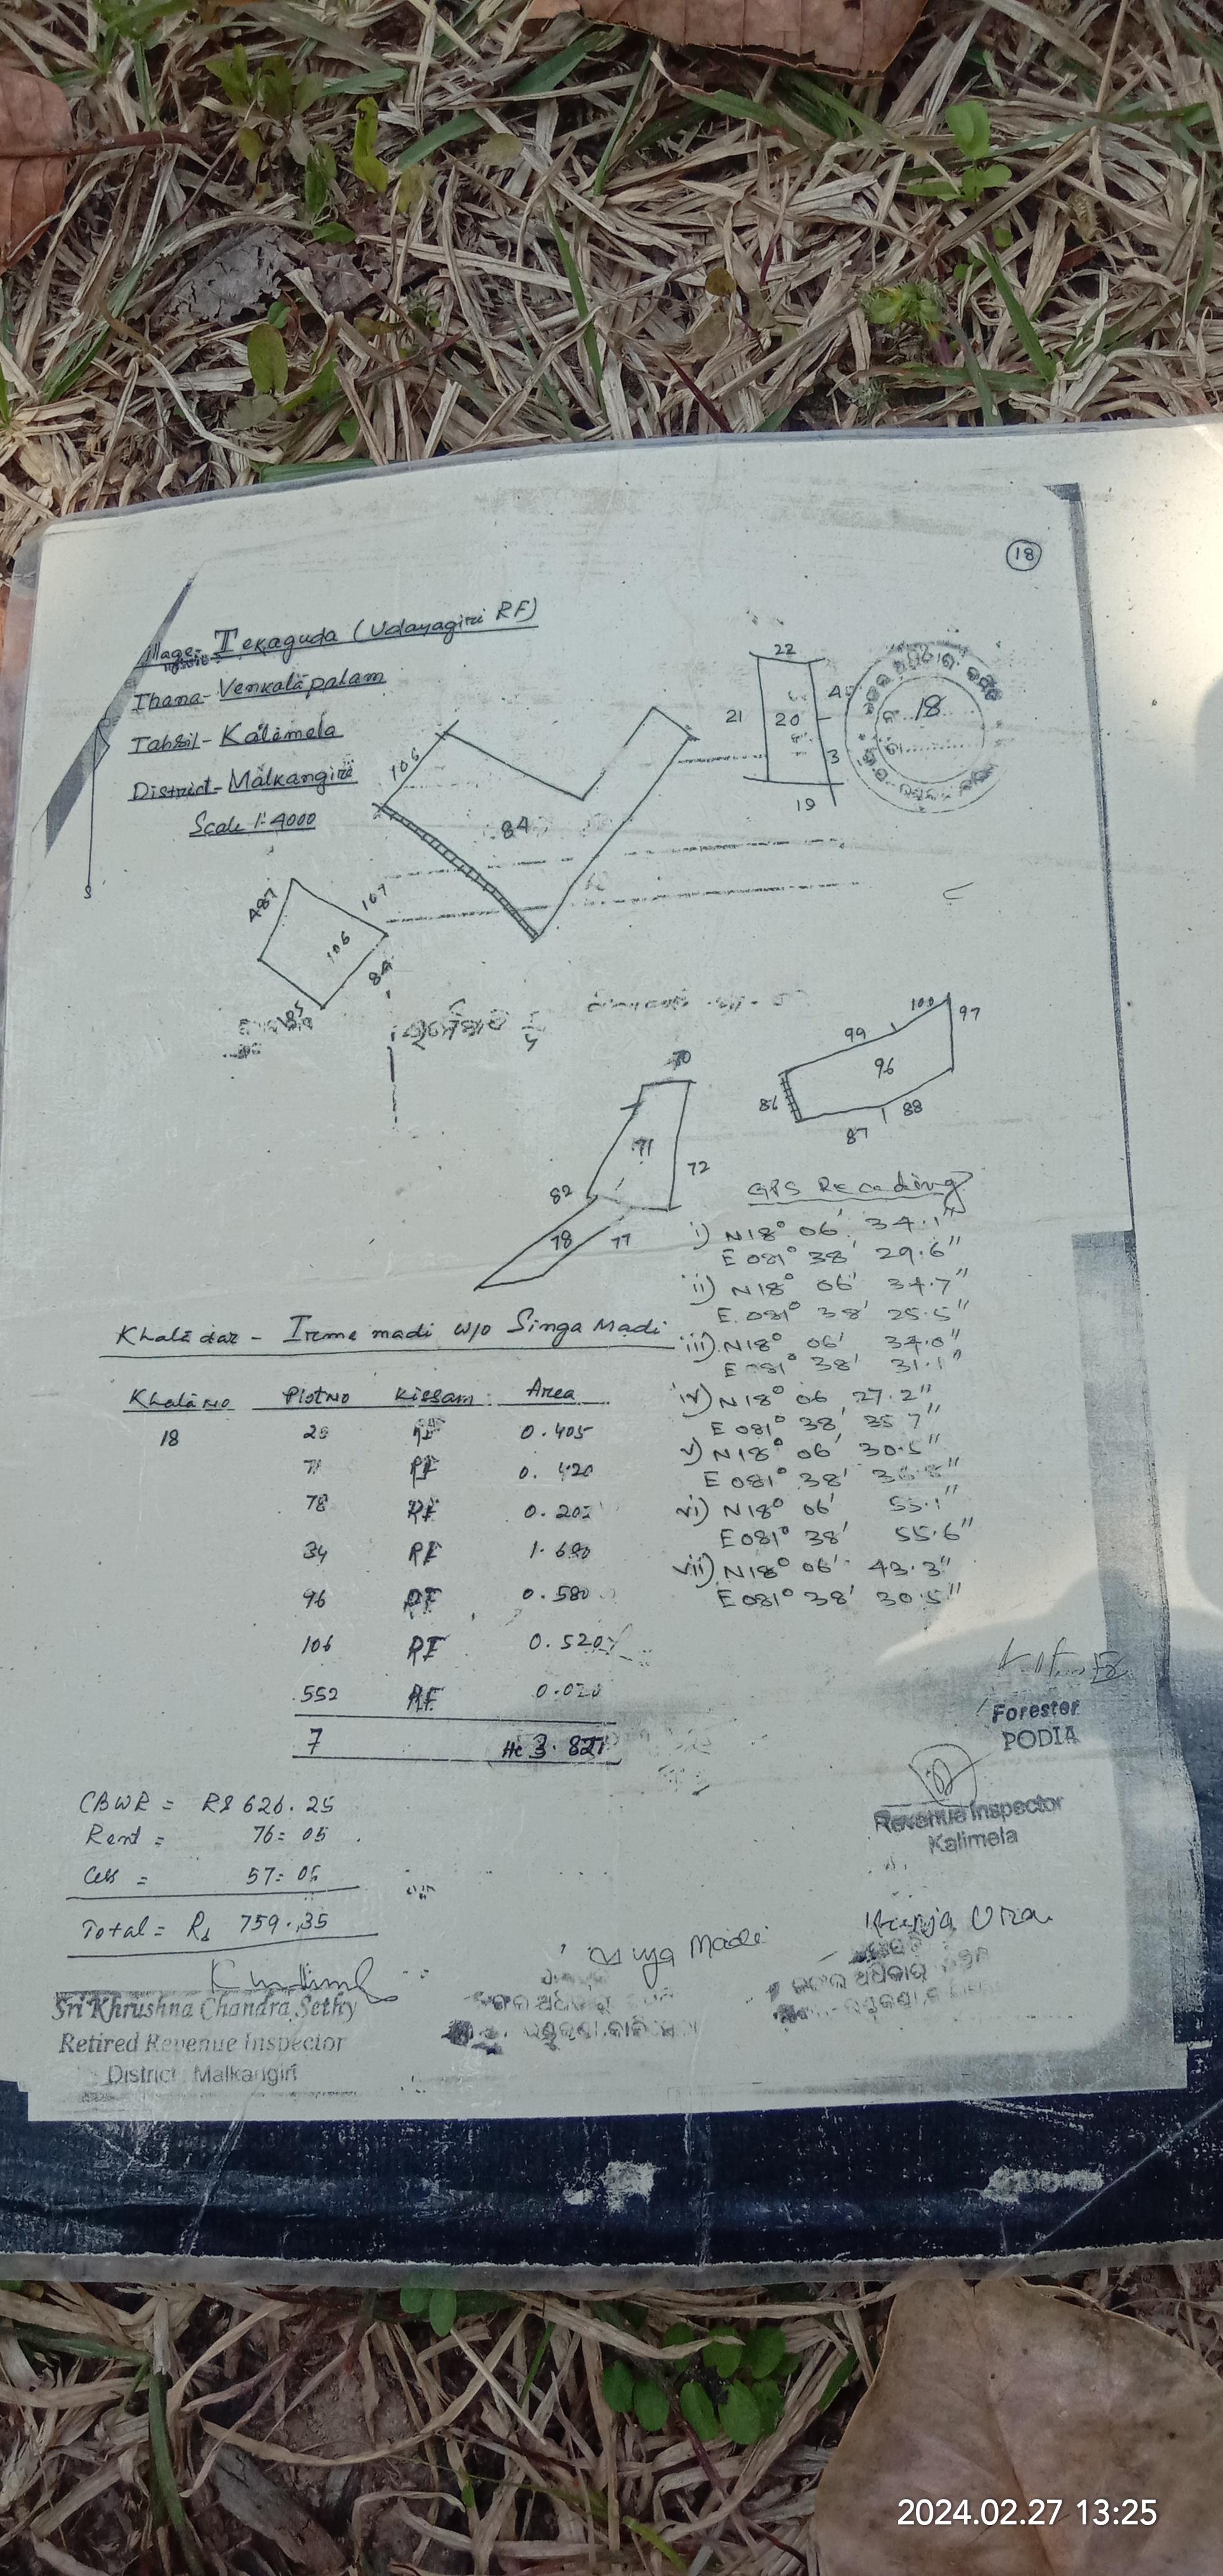 18
Village:- Tekaguda (Udayagiri RF)
Thana- Venkatapalam
Tahsil- Kalimela
District- Malkangiri
Scale 1:4000
22
21
20
3
19
18
106
84
487
107
106
84
70
71
72
82
78
77
99
100
97
96
86
87
88
GPS Recading
i) N18° 06' 34.1"
E 081° 38' 29.6"
ii) N18° 06' 34.7"
E. 081° 38' 25.5"
iii) N18° 06' 34.0"
E 081° 38' 31.1"
iv) N18° 06' 27.2"
E 081° 38' 35.7"
v) N18° 06' 30.5"
E 081° 38'
vi) N18° 06' 55.1"
E 081° 38' 55.6"
vii) N18° 06' 43.3"
E 081° 38' 30.5"
Khatadar - Irme madi w/o Singa Madi
Khata No Plot No Kissam Area
18 20 RF 0.405
71 RF 0.420
78 RF 0.202
RF
96 RF 0.580
106 RF 0.520
552 RF 0.020
7 He 3.827
CBWR = Rs 626.25
Rent = 76=05
Cess = 57=05
Total = Rs 759.35
Forester
PODIA
Revenue Inspector
Kalimela
Madi
Sri Khrushna Chandra Sethy
Retired Revenue Inspector
District Malkangiri
2024.02.27 13:25